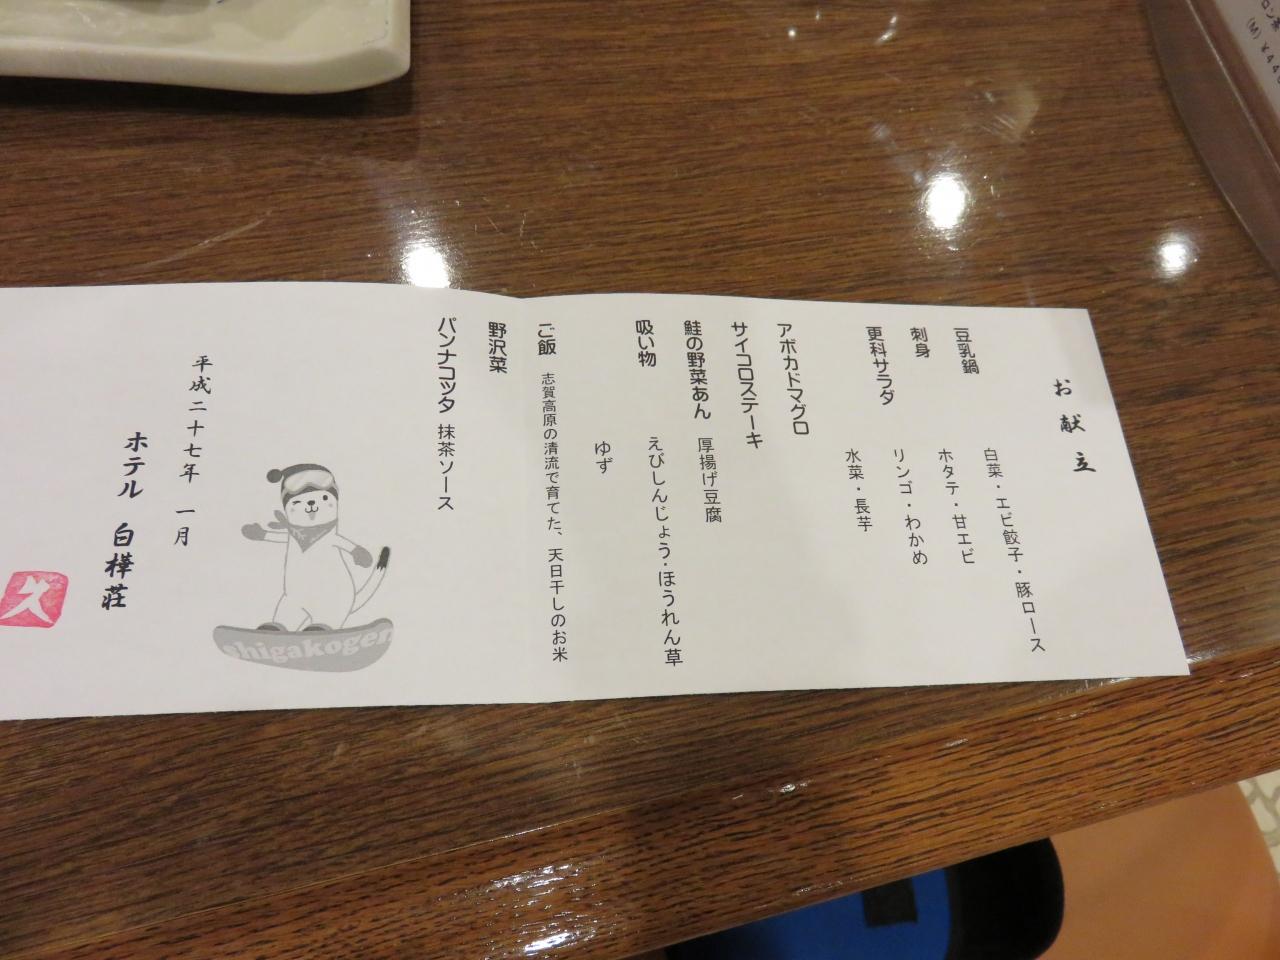 お献立
豆乳鍋
白菜・エビ餃子・豚ロース
刺身
ホタテ・甘エビ
更科サラダ
リンゴ・わかめ
水菜・長芋
アボカドマグロ
サイコロステーキ
鮭の野菜あん 厚揚げ豆腐
吸い物 えびしんじょう・ほうれん草
ゆず
ご飯 志賀高原の清流で育てた、天日干しのお米
野沢菜
パンナコッタ 抹茶ソース
shigakogen
平成二十七年 一月
ホテル 白樺荘
久
(M) ¥44